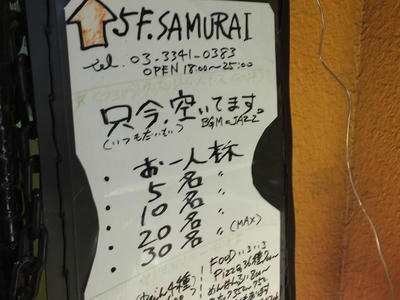 5F. SAMURAI
tel. 03-3341-0383
OPEN 18:00~25:00
只今、空いてます。
(いつもだいたい) BGM=JAZZ
・お一人様
・5名 〃
・10名 〃
・20名 〃
・30名 (MAX)
FOOD いろいろ
Pizza36種